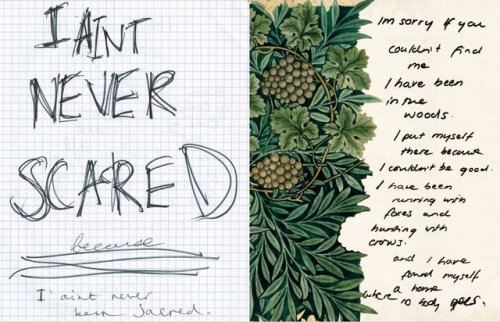 I AINT
NEVER
SCARED
because
I aint never
been Sacred.
Im sorry if you
couldnt find
me
I have been
in the
woods.
I put myself
there because
I couldnt be good.
I have been
running with
foxes and
hunting with
crows.
and i have
found myself
a home
where no body goes.